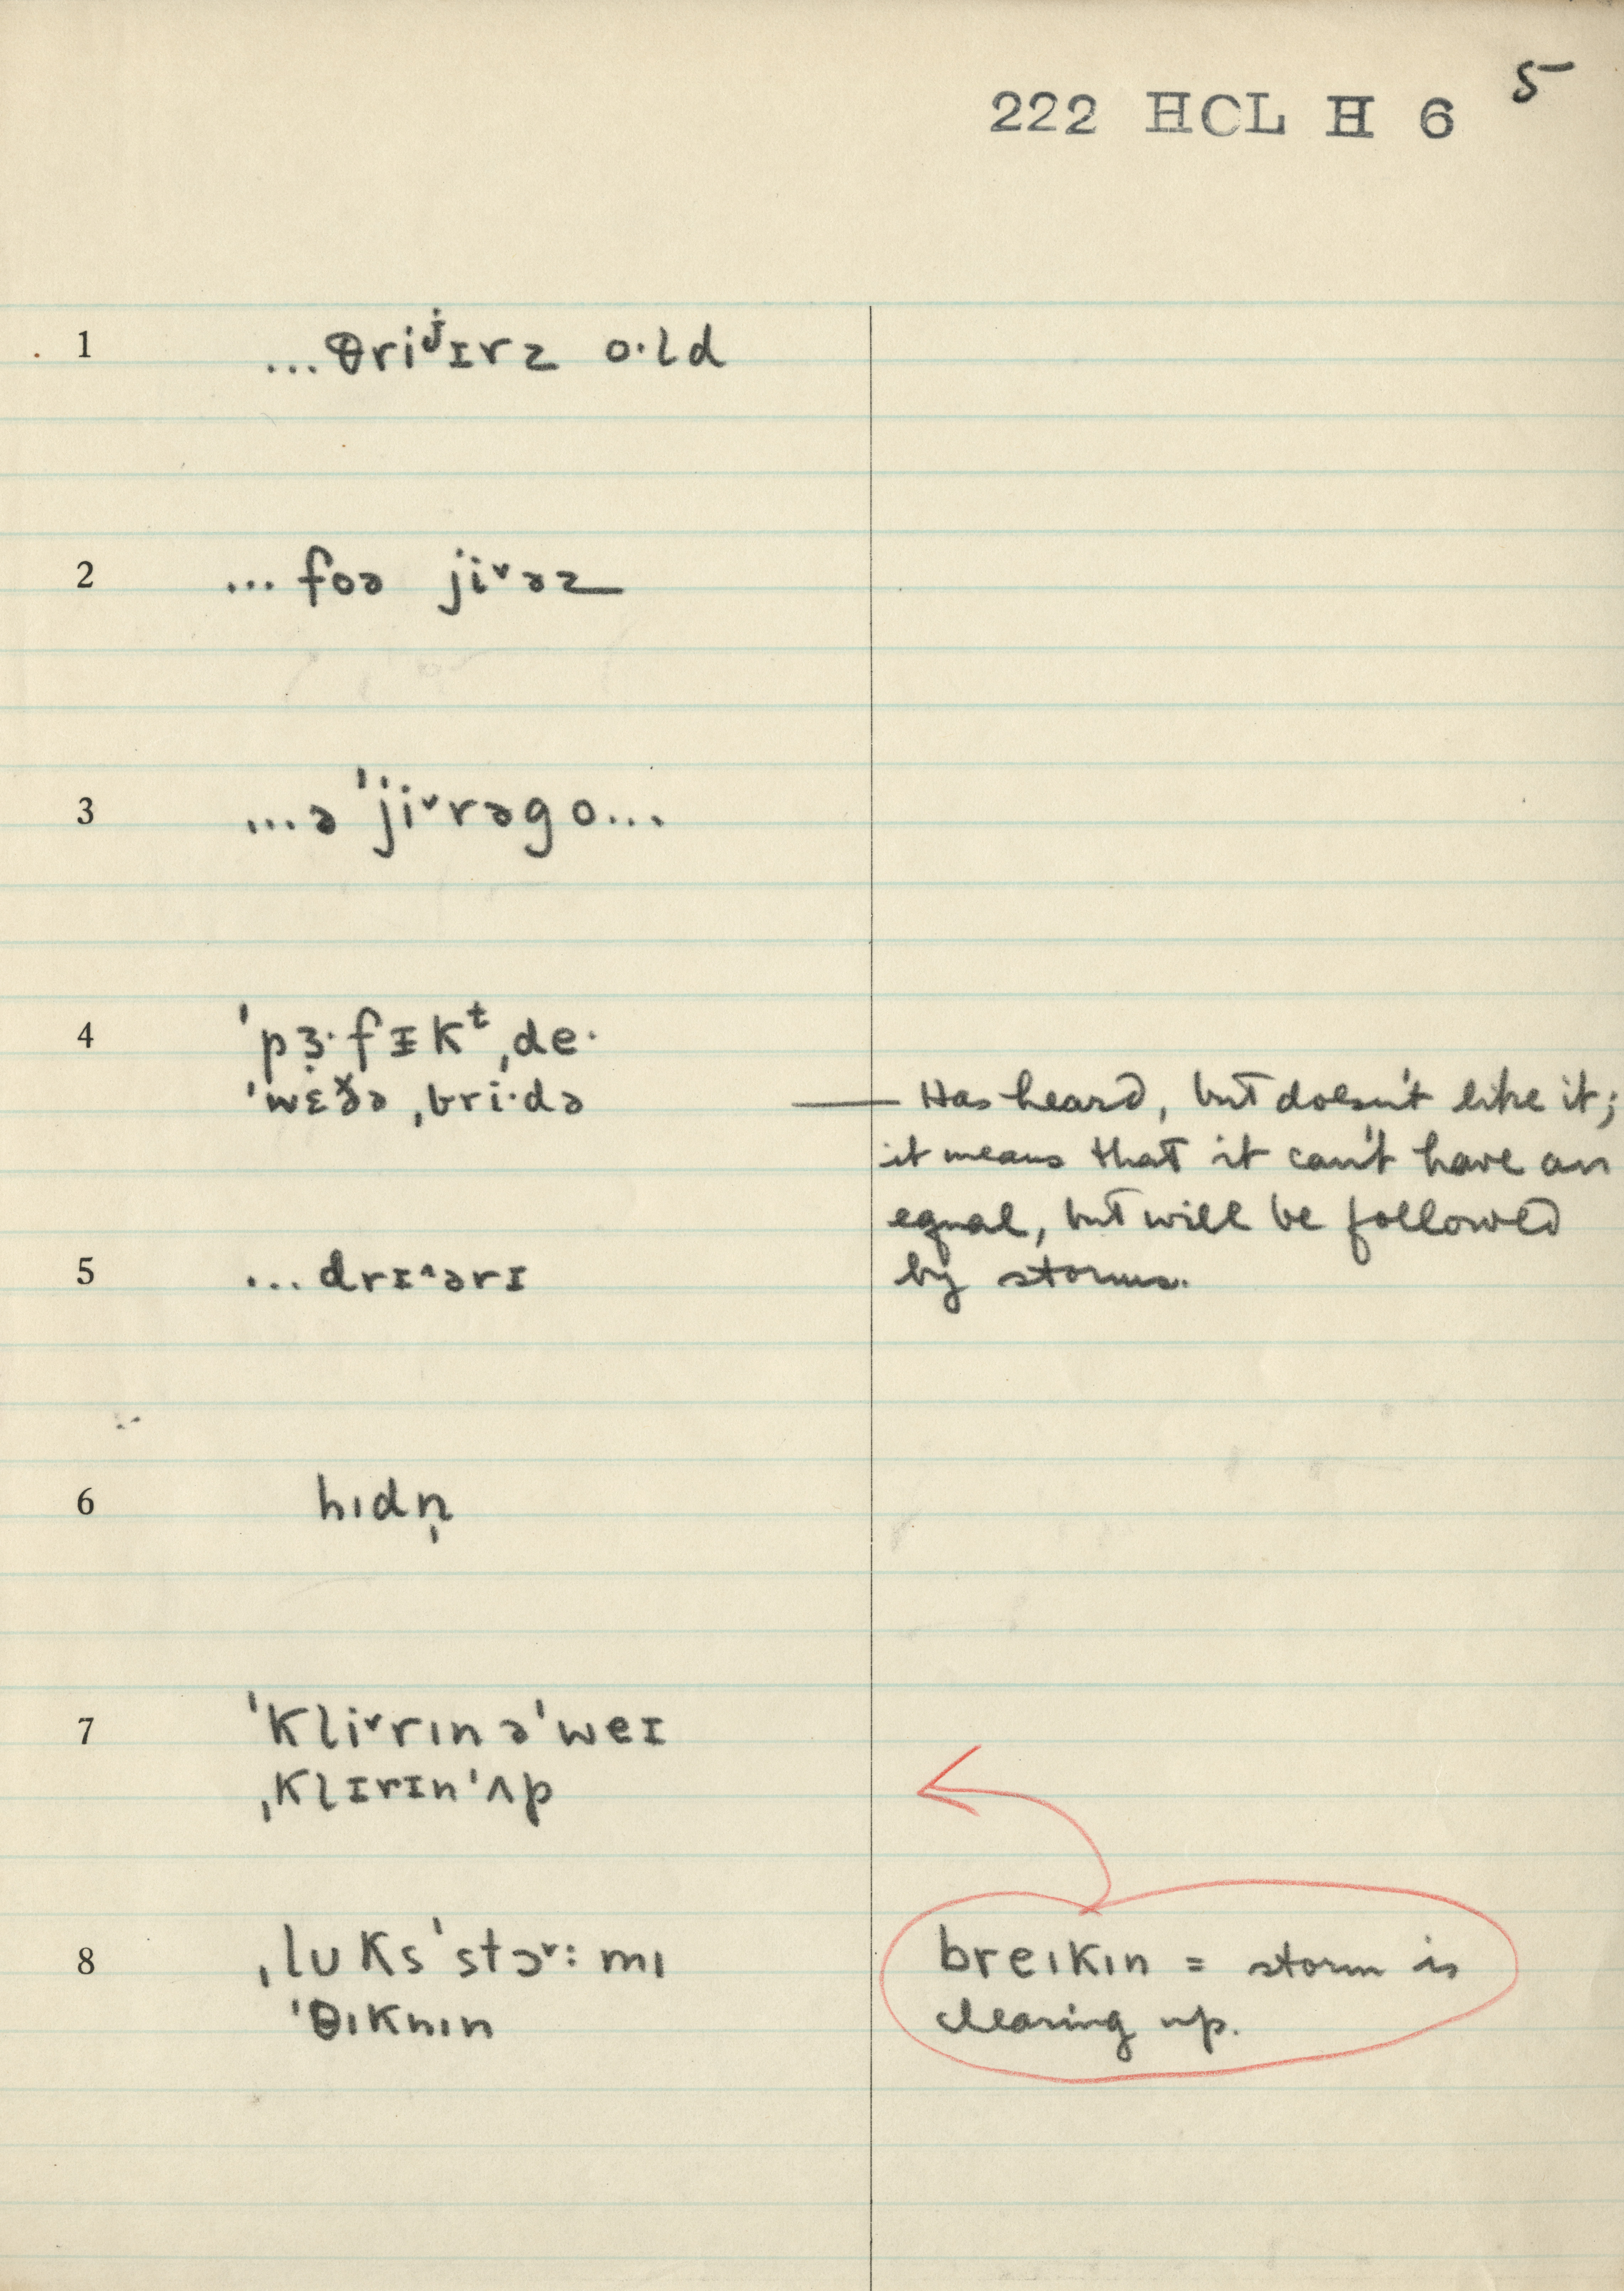 5
222 HCL H 6
1 ...θriʲɪrz o·ld
2 ...foə ji˅əz
3 ...ə ˈji˅rəgo...
4 ˈpɜ̣·fɪkᵗˌde·
ˈwɛðə ˌbri·də
— Has heard, but doesn't like it;
it means that it can't have an
equal, but will be followed
by storms.
5 ...drɪ^ərɪ
6 hıdn̩
7 ˈkli˅rın əˈweɪ
ˌklɪrɪnˈʌp
8 ˌlʊksˈstɔ˅:mı
ˈθıknın
breıkın = storm is
clearing up.